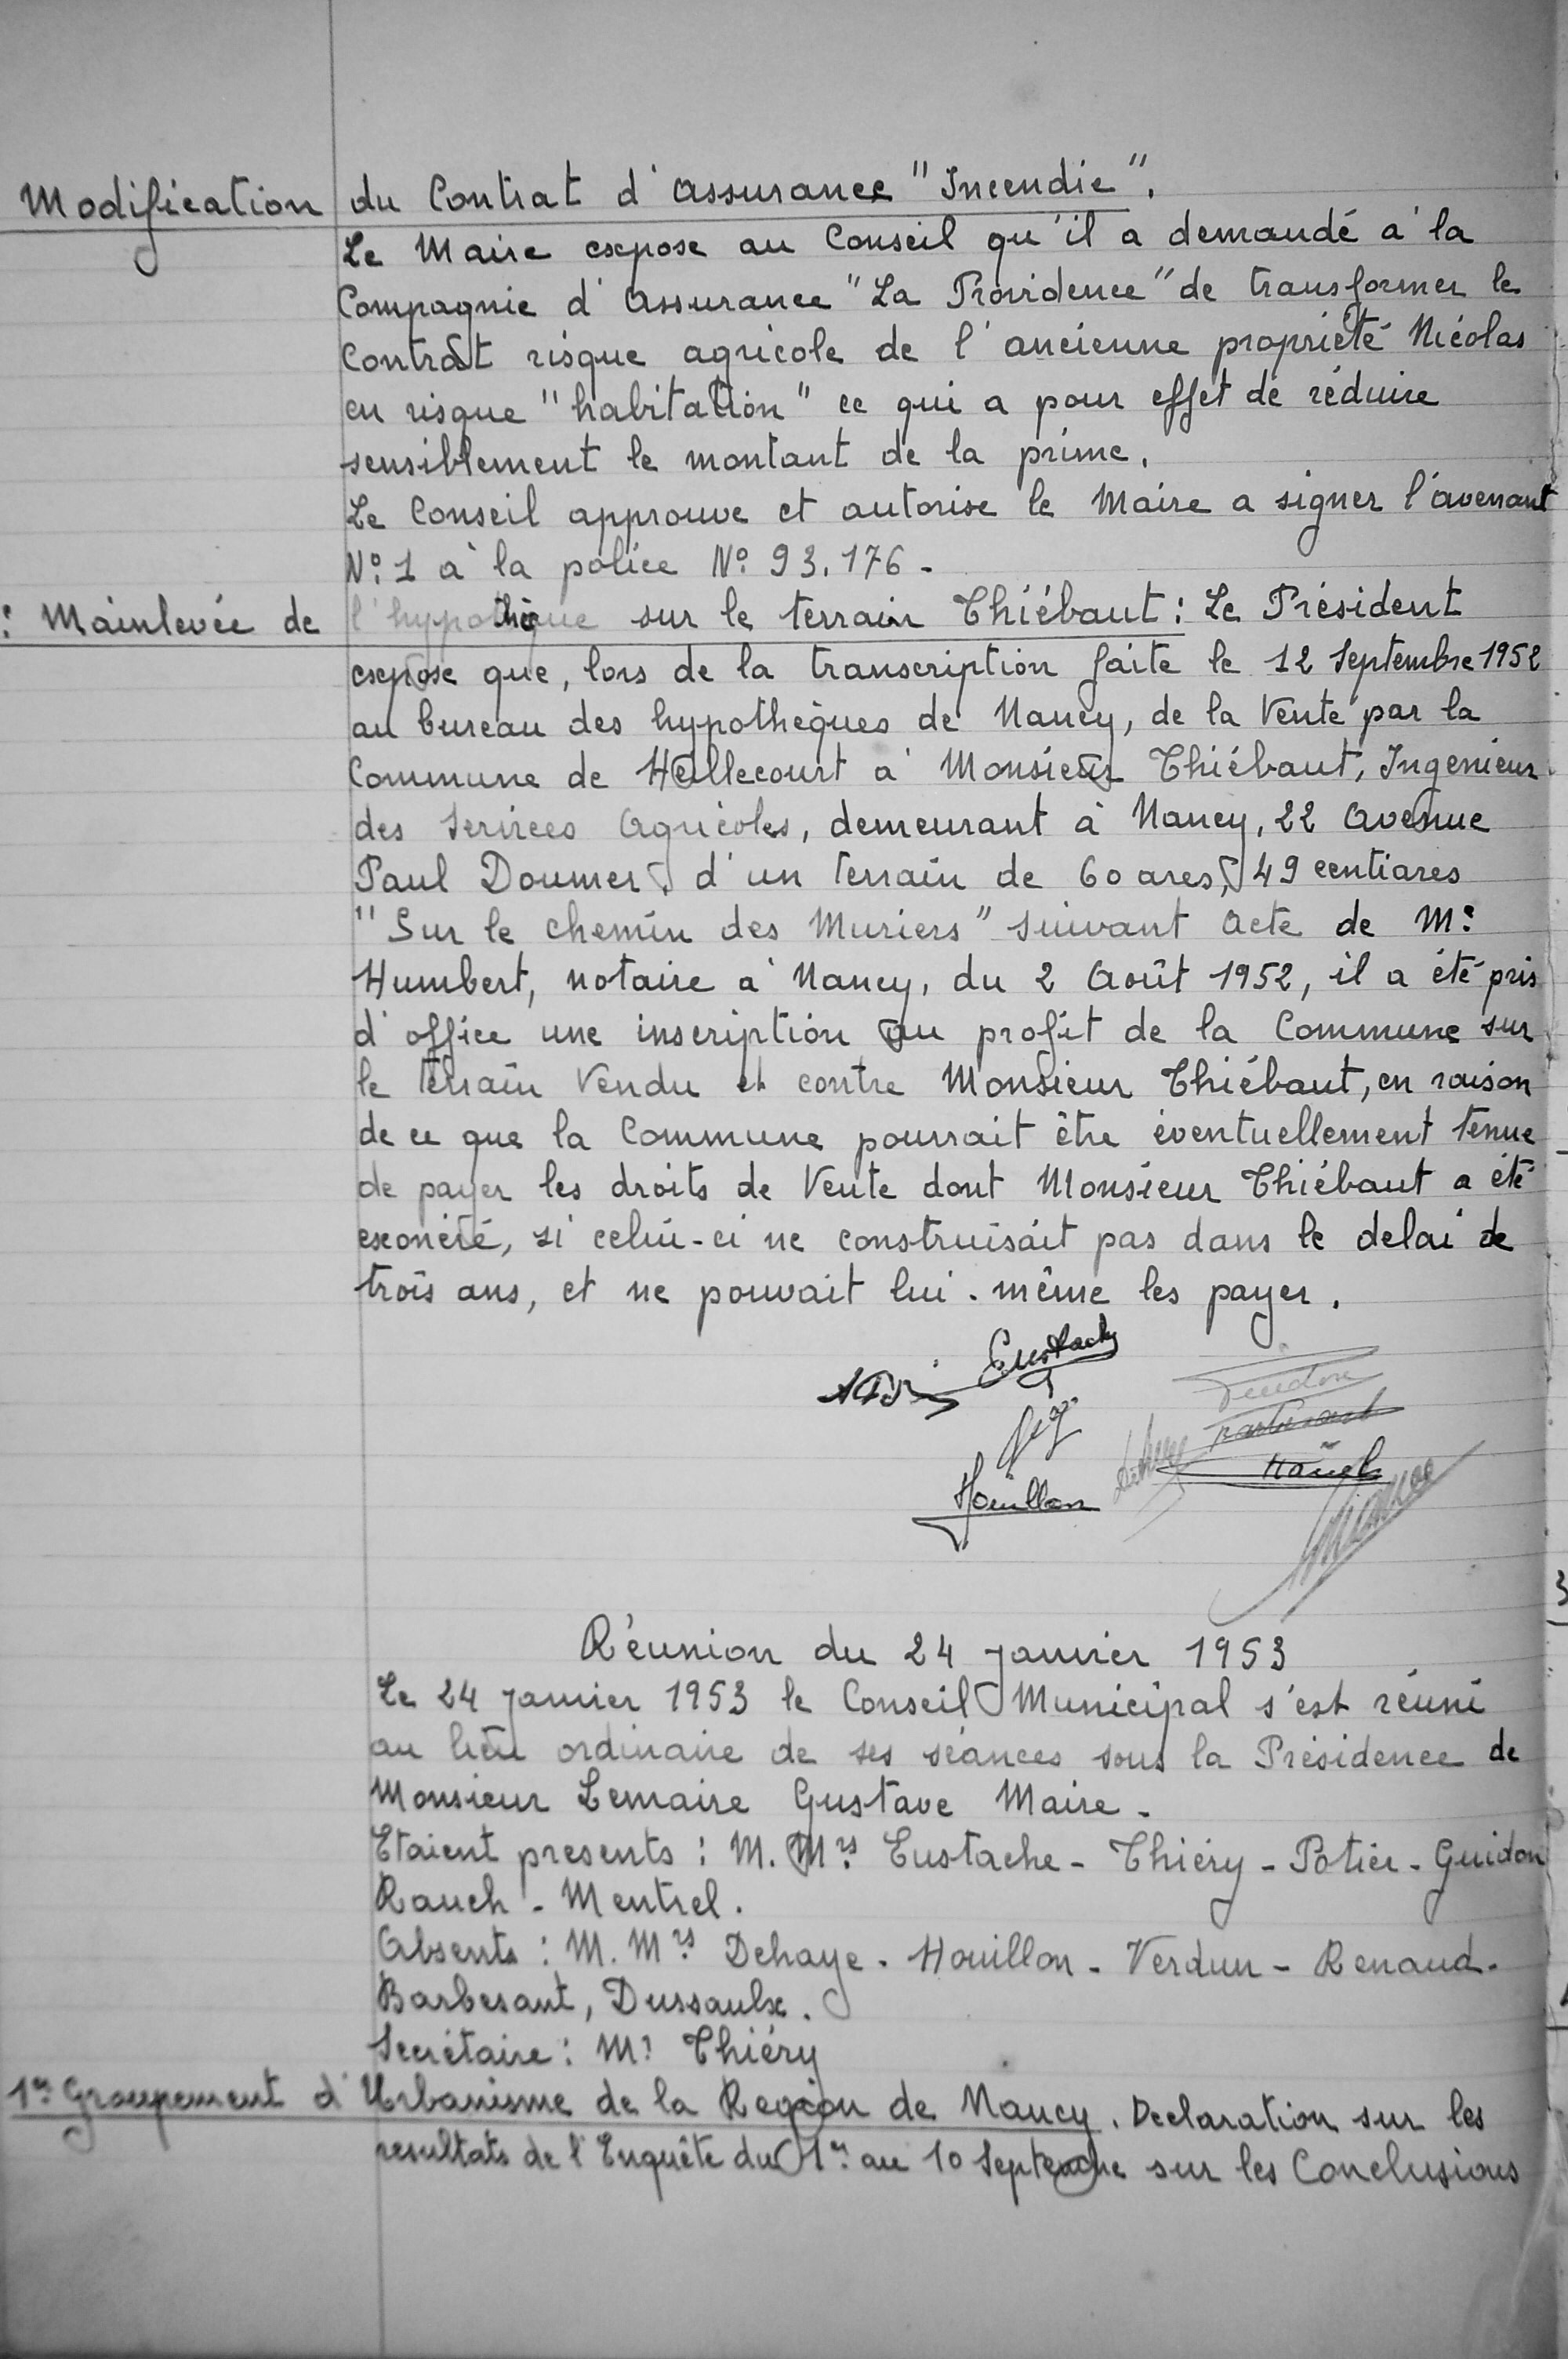 Modification du Contrat d'Assurance "Incendie".
Le Maire expose au Conseil qu'il a demandé à la
Compagnie d'Assurance "La Providence" de transformer le
Contrat risque agricole de l'ancienne propriété Nicolas
en risque "habitation" ce qui a pour effet de réduire
sensiblement le montant de la prime.
Le Conseil approuve et autorise le Maire a signer l'avenant
N° 1 à la police N° 93.176 -
: Mainlevée de l'hypothèque sur le terrain Thiébaut : Le Président
expose que, lors de la transcription faite le 12 Septembre 1952
au bureau des hypothèques de Nancy, de la Vente par la
Commune de Heillecourt à Monsieur Thiébaut, Ingénieur
des Services Agricoles, demeurant à Nancy, 22 Avenue
Paul Doumer, d'un terrain de 60 ares, 49 centiares
"Sur le chemin des Muriers" suivant acte de Me
Humbert, notaire à Nancy, du 2 Août 1952, il a été pris
d'office une inscription au profit de la Commune sur
le terrain Vendu et contre Monsieur Thiébaut, en raison
de ce que la Commune pourrait être éventuellement tenue
de payer les droits de Vente dont Monsieur Thiébaut a été
exonéré, si celui-ci ne construisait pas dans le delai de
trois ans, et ne pouvait lui-même les payer.
Eustache
Guidon
Barbesant
Houillon
Réunion du 24 janvier 1953
Le 24 janvier 1953 le Conseil Municipal s'est réuni
au lieu ordinaire de ses séances sous la Présidence de
Monsieur Lemaire Gustave Maire -
Etaient presents : M. Mrs Eustache - Thiéry - Potier - Guidon
Rauch - Mentrel.
Absents : M. Mrs Dehaye - Houillon - Verdun - Renaud -
Barbesant, Dussaulx.
Secrétaire : Mr Thiéry
1er Groupement d'Urbanisme de la Region de Nancy. Declaration sur les
resultats de l'Enquête du 1er au 10 Septembre sur les Conclusions